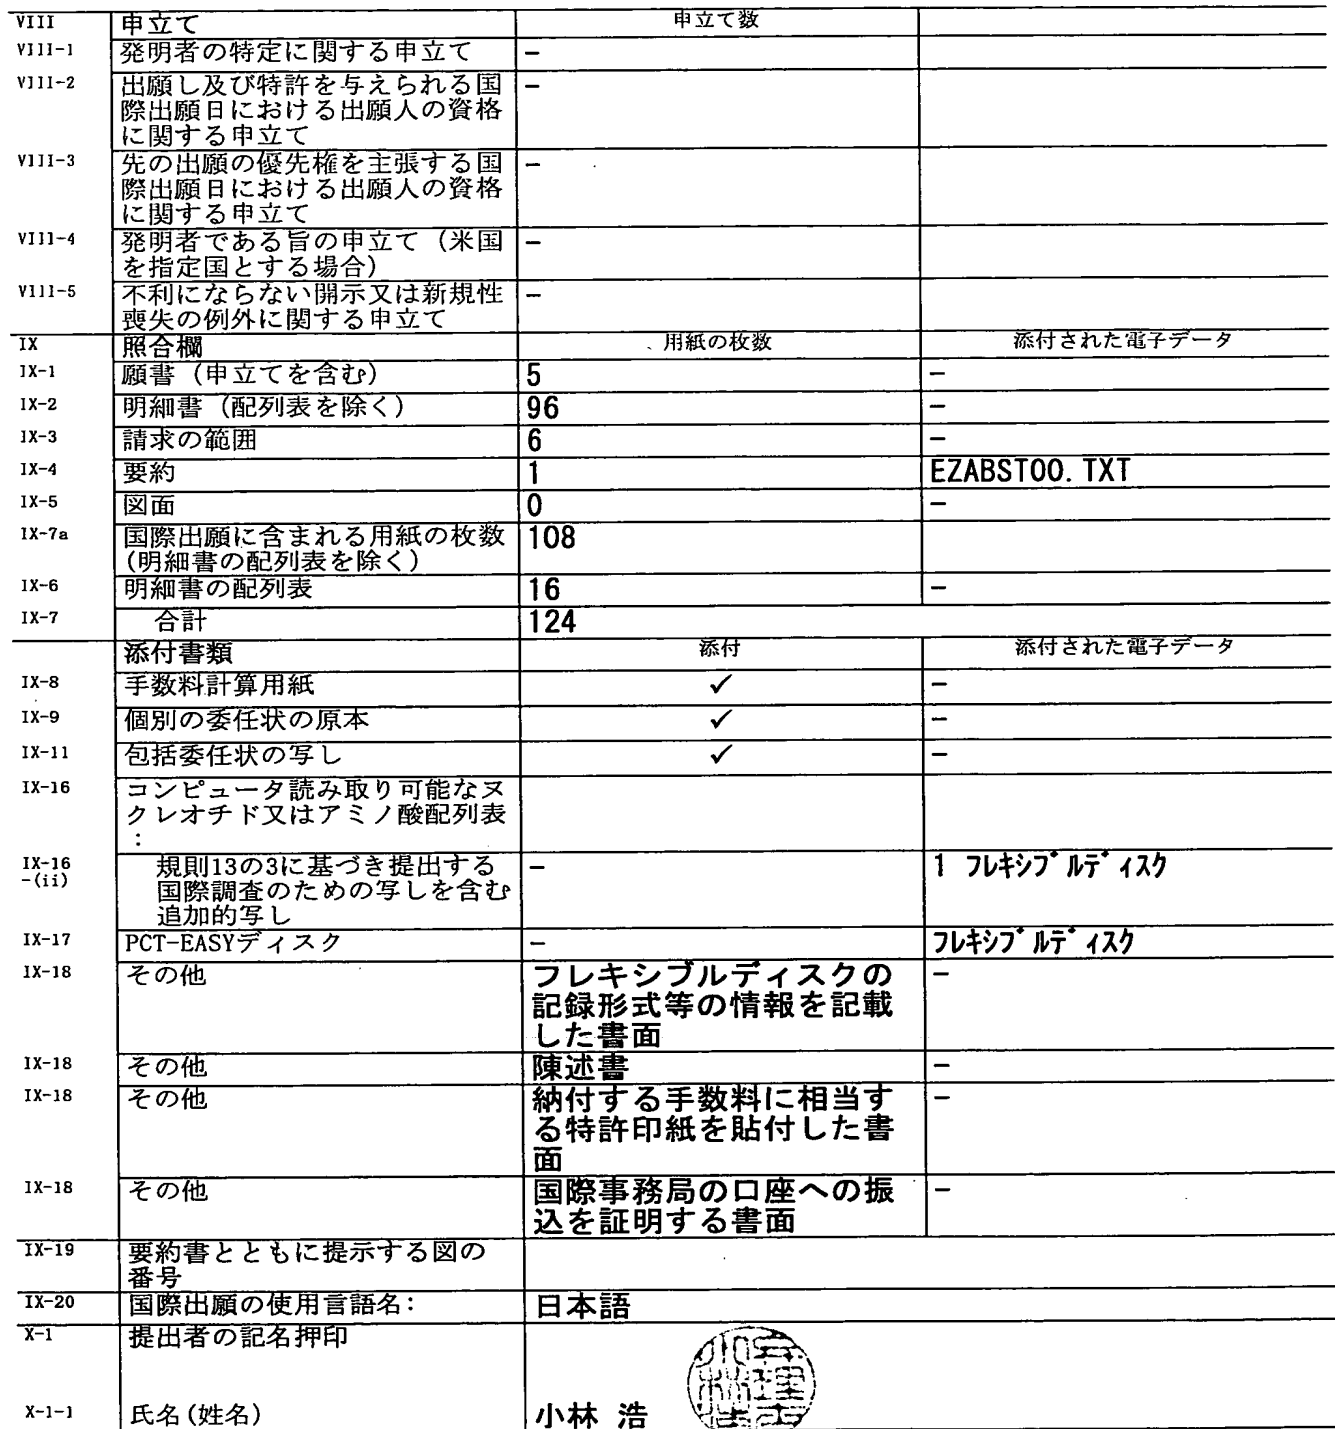 VIII 申立て 申立て数
VIII-1 発明者の特定に関する申立て -
VIII-2 出願し及び特許を与えられる国 -
際出願日における出願人の資格
に関する申立て
VIII-3 先の出願の優先権を主張する国 -
際出願日における出願人の資格
に関する申立て
VIII-4 発明者である旨の申立て（米国 -
を指定国とする場合）
VIII-5 不利にならない開示又は新規性 -
喪失の例外に関する申立て
IX 照合欄 用紙の枚数 添付された電子データ
IX-1 願書（申立てを含む） 5 -
IX-2 明細書（配列表を除く） 96 -
IX-3 請求の範囲 6 -
IX-4 要約 1 EZABST00.TXT
IX-5 図面 0 -
IX-7a 国際出願に含まれる用紙の枚数 108
(明細書の配列表を除く)
IX-6 明細書の配列表 16 -
IX-7 合計 124
添付書類 添付 添付された電子データ
IX-8 手数料計算用紙 ✓ -
IX-9 個別の委任状の原本 ✓ -
IX-11 包括委任状の写し ✓ -
IX-16 コンピュータ読み取り可能なヌ
クレオチド又はアミノ酸配列表
:
IX-16 規則13の3に基づき提出する - 1 ﾌﾚｷｼﾌﾞﾙﾃﾞｨｽｸ
-(ii) 国際調査のための写しを含む
追加的写し
IX-17 PCT-EASYディスク - ﾌﾚｷｼﾌﾞﾙﾃﾞｨｽｸ
IX-18 その他 フレキシブルディスクの -
記録形式等の情報を記載
した書面
IX-18 その他 陳述書 -
IX-18 その他 納付する手数料に相当す -
る特許印紙を貼付した書
面
IX-18 その他 国際事務局の口座への振 -
込を証明する書面
IX-19 要約書とともに提示する図の
番号
IX-20 国際出願の使用言語名: 日本語
X-1 提出者の記名押印
X-1-1 氏名(姓名) 小林 浩